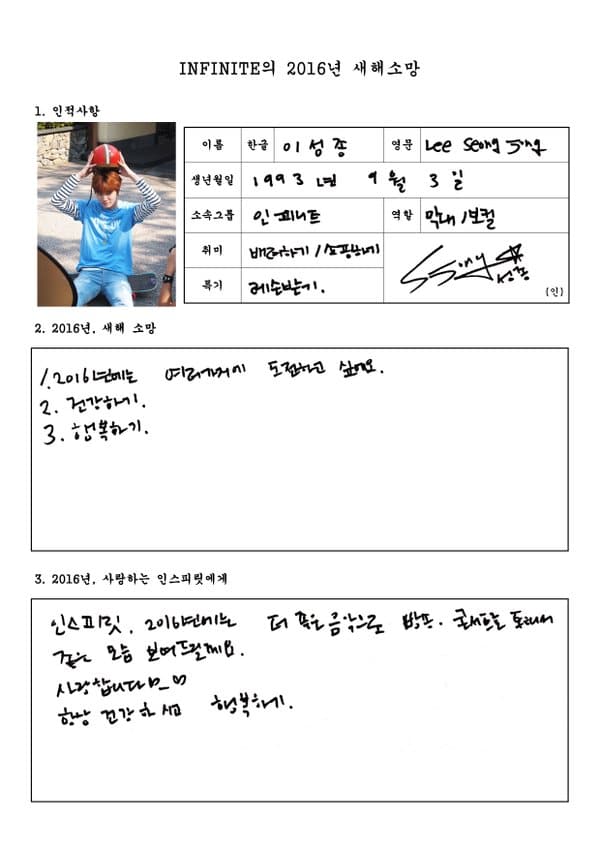 INFINITE의 2016년 새해소망
1. 인적사항
이름 한글 이성종 영문 Lee Seong Jong
생년월일 1993년 9월 3일
소속그룹 인피니트 역할 막내/보컬
취미 배려하기/쇼핑하기
특기 레슨받기.
성종
(인)
2. 2016년, 새해 소망
1. 2016년에는 여러가지에 도전하고 싶어요.
2. 건강하기.
3. 행복하기.
3. 2016년, 사랑하는 인스피릿에게
인스피릿, 2016년에는 더 좋은 음악으로 방송. 콘서트를 통해서
좋은 모습 보여드릴께요.
사랑합니다
항상 건강하시고 행복하기.